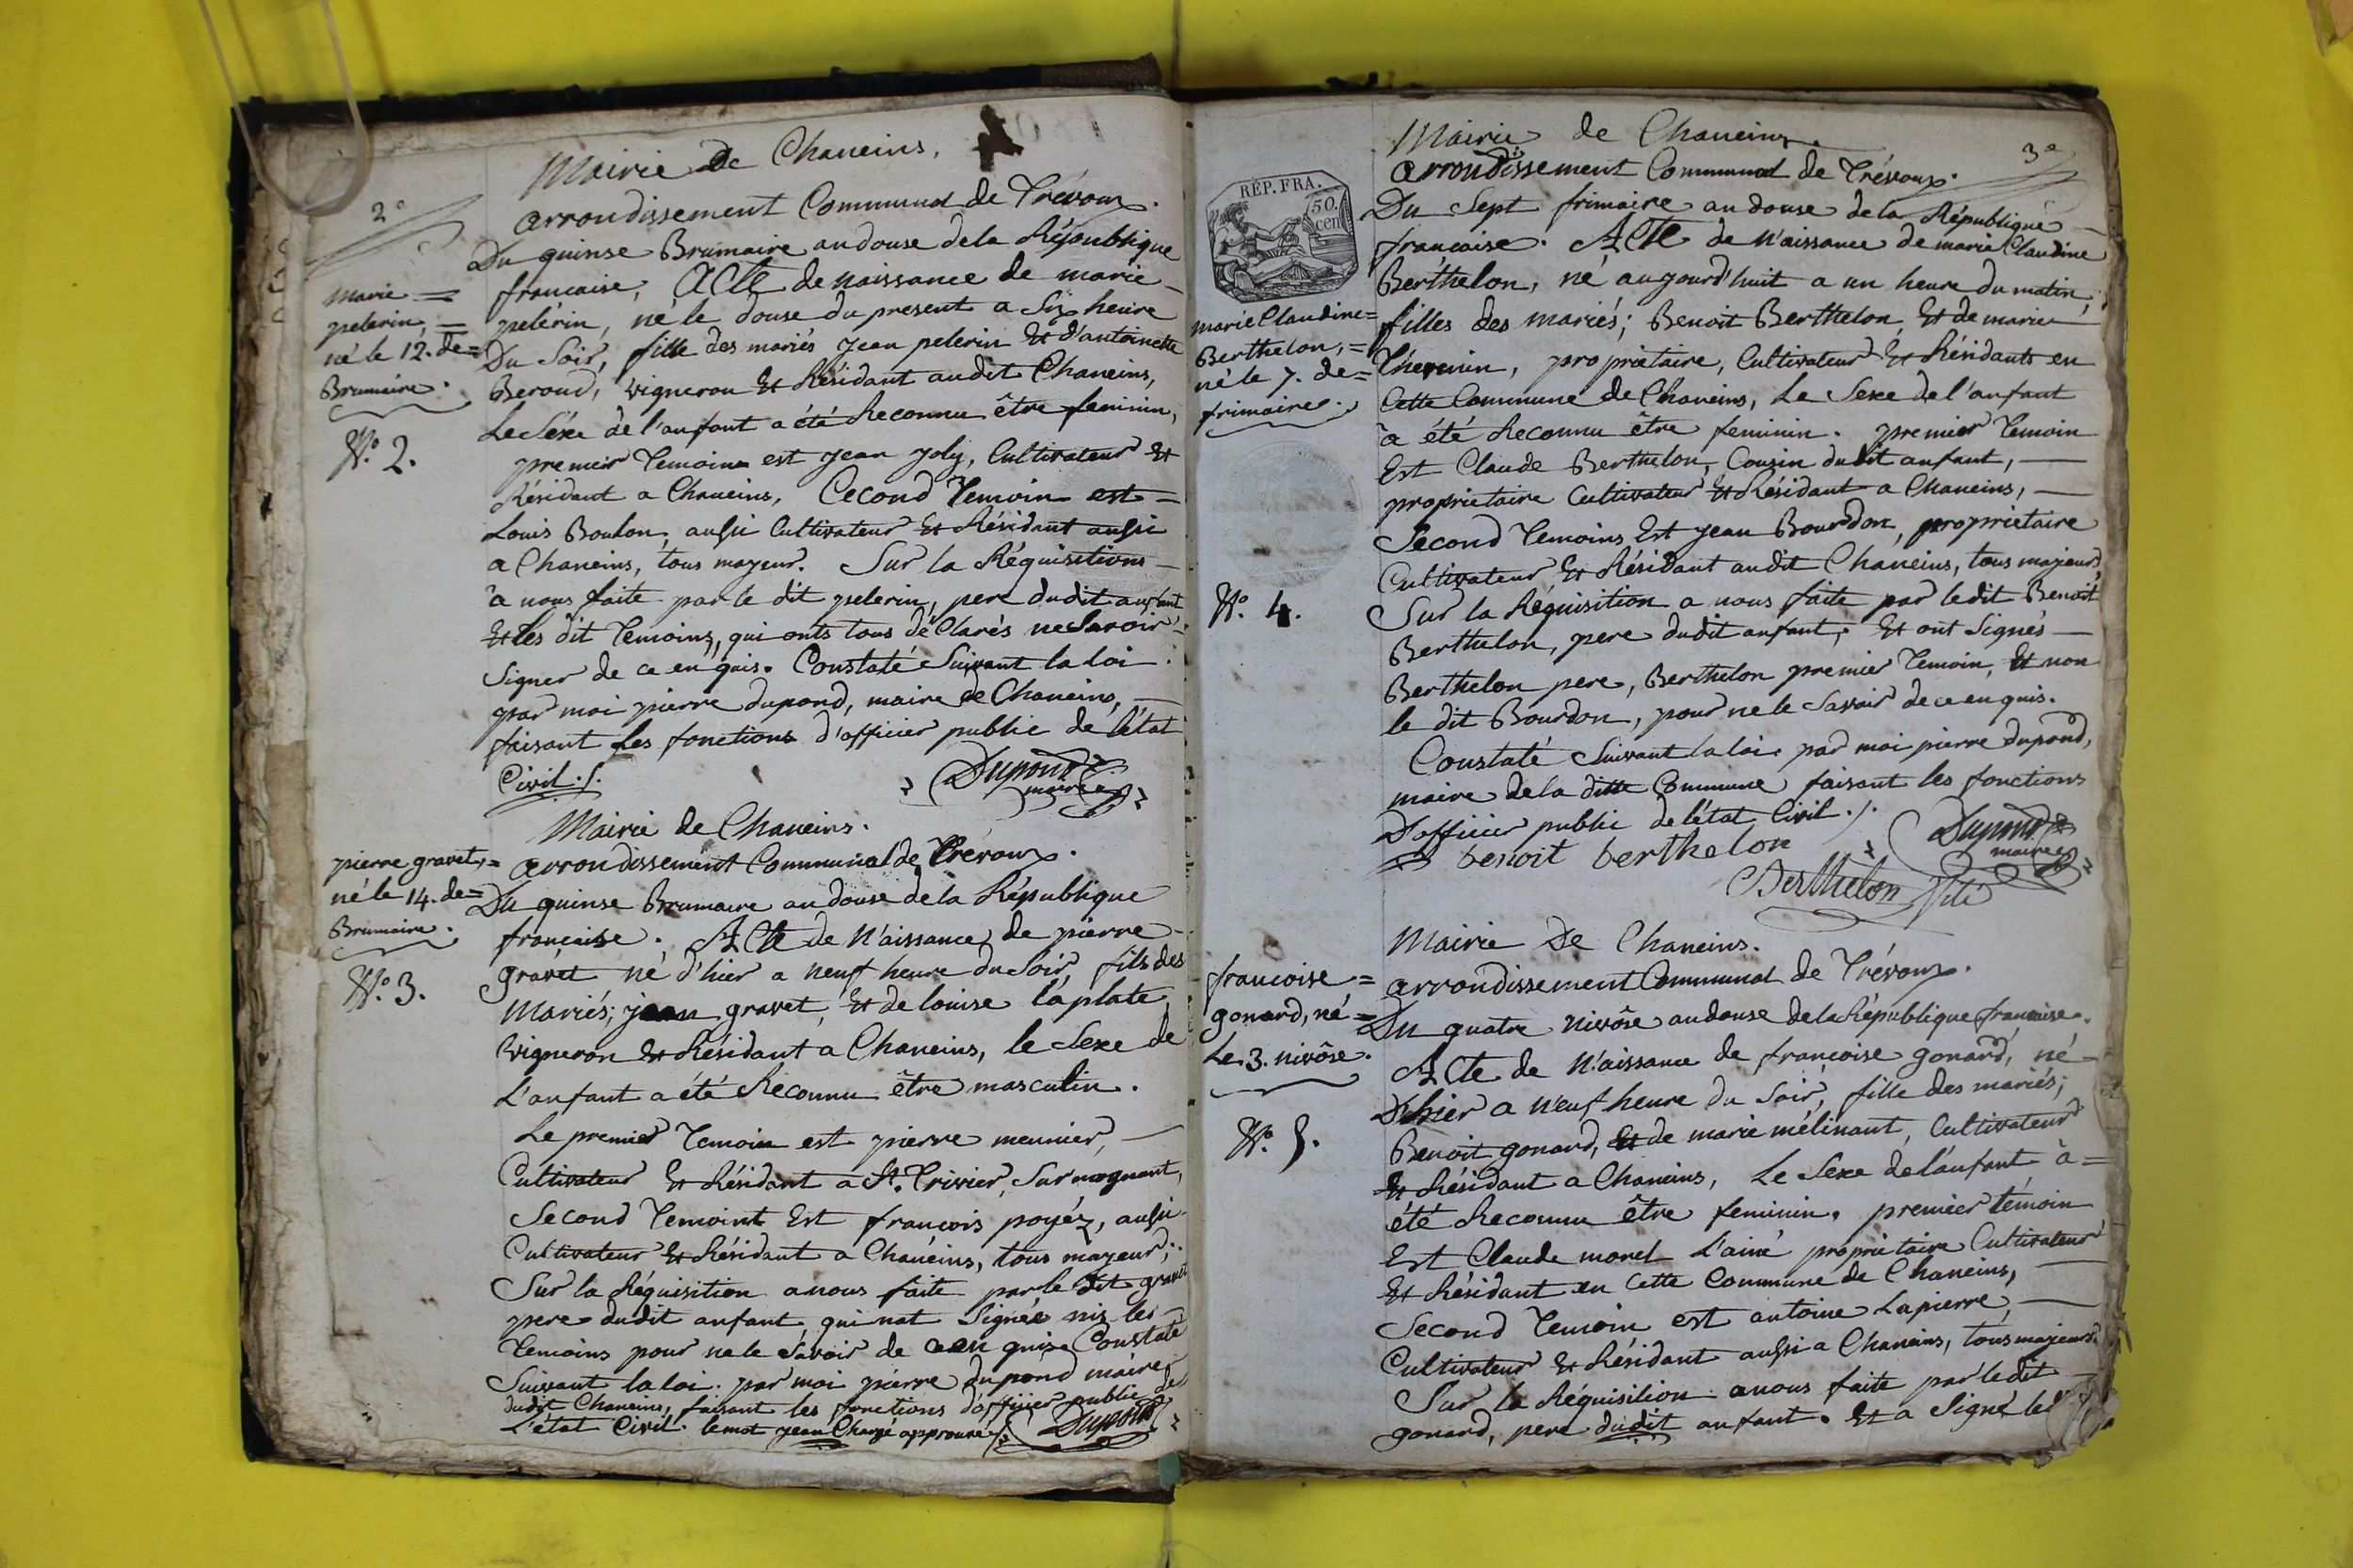 2e
Mairie de Chaneins,
arrondissement Communal de Trévoux.
Du quinse Brumaire an douse dela République
francaise, Acte de naissance de marie
pelerin, né le douse du present a Six heure
Du Soir, fille des mariés jean pelerin Et d'antoinette
Beroud, vigneron Et Résidant audit Chaneins,
Le Séxe de l'anfant a été Reconnu être feminin,
premier Temoins est jean joly, Cultivateur Et
Résidant a Chaneins, Cecond Temoin est =
Louis Boulon, aussi Cultivateur Et Résidant aussi
a Chaneins, tous mayeur. Sur la Réquisitions
à nous faite par le dit pelerin, pere dudit anfant
Et les dit Temoins, qui onts tous déClarés ne Savoir
Signer de ce en quis. Constaté Suivant la loi
par moi pierre dupond, maire de Chaneins,
faisant les fonctions d'officier public de l'état
Civil ./.
Dupond
maire
marie =
pelerin, =
né le 12. de =
Brumaire.
N.o 2.
Mairie de Chaneins.
arrondissement Communal de Trévoux.
Du quinse Brumaire an douse de la République
francaise. Acte de N'aissance de pierre
gravet né d'hier a neuf heure du Soir, fils des
Mariés; jean gravet, Et de louise laplate,
vigneron Et Résidant a Chaneins, le Sexe de
L'anfant a été Reconnu être masculin.
Le premier Temoin est pierre meunier,
Cultivateur Et Résidant a St. Trivier, Sur mognant,
Second Temoint Est francois poyéz, aussi
Cultivateur Et Résidant a Chanéins, tous mayeur;
Sur la Réquisition a nous faite par le dit gravet
pere dudit anfant qui nat Signée nis les
Temoins pour ne le Savoir de ceen quis. Constaté
Suivant la loi. par moi pierre dupond maire
dudit Chaneins, faisant les fonctions d'officier public de
L'état Civil. le mot jean Chargé approuvé ./.
Dupond
pierre gravet, =
né le 14. de =
Brumaire.
N.o 3.
3e
Mairie de Chaneins.
arrondissement Communal de Trévoux.
Du Sept frimaire an douse de la République
francaise. Acte de N'aissance de marie Claudine
Berthelon, né aujourd'huit a un heure du matin,
filles des mariés; Benoit Berthelon, Et de marie
Thevenin, propriétaire, Cultivateur Et Résidants en
Cette Commune de Chaneins, Le Sexe de l'anfant
à été Reconnu être feminin. premier Temoin
Est Claude Berthelon, Cousin dudit anfant,
propriétaire Cultivateur Et Résidant a Chaneins,
Second Temoins Est jean Bourdon, proprietaire
Cultivateur Et Résidant audit Chanéins, tous majeurs,
Sur la Réquisition a nous faite par ledit Benoit
Berthelon, pere dudit anfant, Et ont Signés
Berthelon pere, Berthelon premier Temoin, Et non
le dit Bourdon, pour ne le Savoir de ce en quis.
Constaté Suivant la loi par moi pierre dupond,
maire de la ditte Commune faisant les fonctions
D'officier public de l'état Civil ./.
benoit berthelon
Dupond
maire
Berthelon
RÉP. FRA.
50.
cen
marie Claudine =
Berthelon, =
né le 7. de =
frimaire.
N.o 4.
Mairie De Chaneins.
arrondissement Communal de Trévoux.
Du quatre nivôse an douse de la République francaise.
Acte de N'aissance de françoise gonard, né
D'hier a neuf heure du Soir, fille des mariés;
Benoit gonard, Et de marie mélinant, Cultivateur
Et Résidant a Chaneins, Le Sexe de l'anfant à =
été Reconnu être feminin, premier témoin
Est Claude morel L'ainé propriétaire Cultivateur
Et Résidant en Cette Commune de Chaneins,
Second Temoin est antoine Lapierre,
Cultivateur Et Résidant aussi a Chaneins, tous majeurs.
Sur la Réquisition a nous faite par ledit
gonard, pere dudit anfant. Et a Signé le
francoise =
gonard, né =
Le 3. nivôse.
N.o 5.